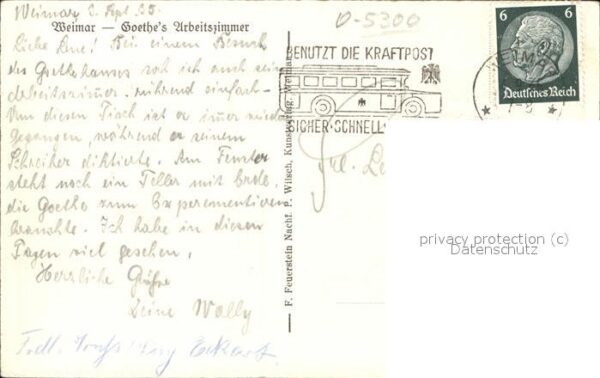 Weimar 2. Sept 35.
D-5300
Weimar — Goethe's Arbeitszimmer
Liebe Line! Bei einem Besuch
des Goethehauses sah ich auch sein
Arbeitszimmer. rührend einfach-
Um diesen Tisch ist er immer
gegangen, während er seinem
Schreiber diktierte. Am Fenster
steht noch ein Teller mit Erde,
die Goethe zum Experementieren
brauchte. Ich habe in diesen
Tagen viel gesehen.
Herzliche Grüße
Deine Wally
F. Feuerstein Nachf. P. Witsch, Kunstverlag, Weimar
BENUTZT DIE KRAFTPOST
SICHER·SCHNELL·
6 6
Deutsches Reich
WEIMAR
7-8
Frl.
privacy protection (c)
Datenschutz